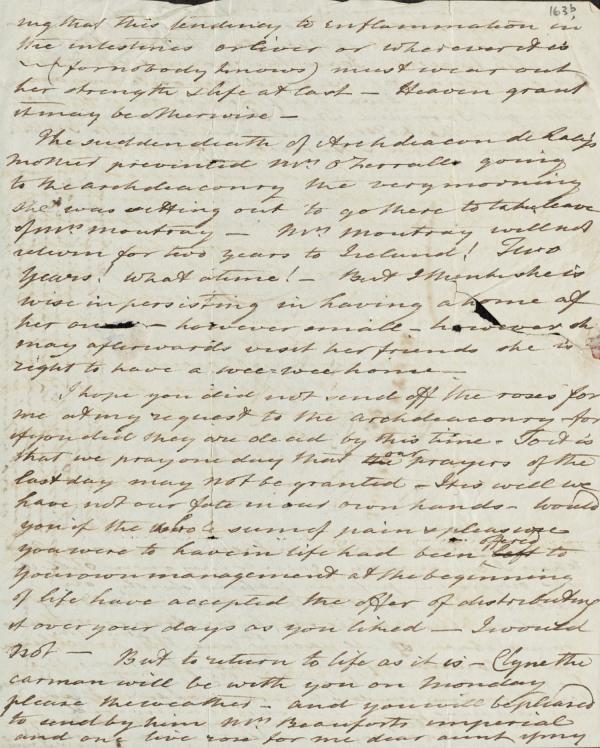 163b
ing that this tendency to inflammation in
the intestines or liver or wherever it is
– (for nobody knows) must wear out
her strength & life at last – Heaven grant
it may be otherwise –
The sudden death of Archdeacon de Lacy's
mother prevented Mrs O'Ferralls going
to the archdeaconry the very morning
she was setting out to go there to take leave
of Mrs Moutray – Mrs Moutray will not
return for two years to Ireland! Two
years! What a time! – But I think she is
wise in persisting in having a home of
her own – however small – however she
may afterwards visit her friends she is
right to have a wee-wee home –
I hope you did not send off the roses for
me at my request to the archdeaconry – for
if you did they are dead by this time – So it is
that we pray one day that the our prayers of the
last day may not be granted – It is well we
have not our fate in our own hands – Would
you if the whole sum of pain & pleasure
you were to have in life had been left offered to
your own management at the beginning
of life have accepted the offer of distributing
it over your days as you liked – I would
not – But to return to life as it is – Clyne the
carman will be with you on Monday
please the weather – and you will be pleased
to send by him Mrs Beauforts imperial
and one live rose for me dear aunt if my